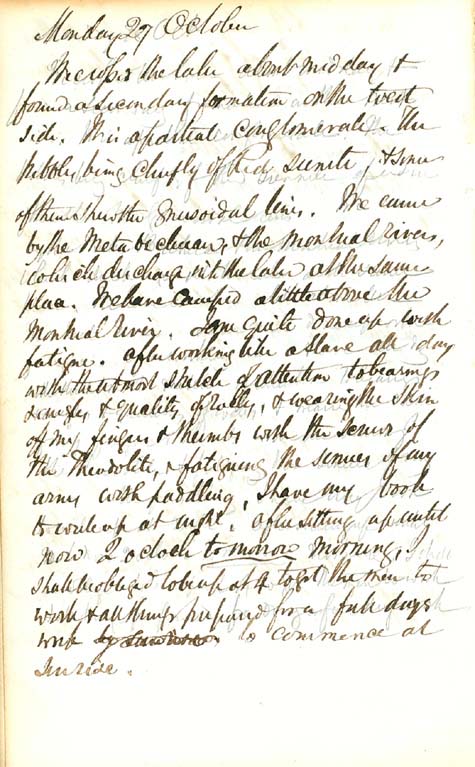 Monday 27 October
We cross the lake about midday &
found a secondary formation on the west
side. It is a partial conglomerate. The
pebbles being chiefly of red sienite & some
of them show the gneisoidal lines. We came
by the Metabechuan, & the Montreal Rivers,
which discharge into the lake at the same
place. We have camped a little above the
Montreal River. I am quite done up with
fatigue. After working like a slave all day
with the utmost stretch of attention to bearings
& angles & quality of rocks, & wearing the skin
of my fingers & thumbs with the screws of
the Theodolite, & fatiguing the sinews of my
arms with paddling, I have my book
to write up at night, & after sitting up until
now 2 oclock to morrow morning, I
shall be obliged to be up at 4 to get the men to
work & all things prepared for a full days
work to commence at
Sunrise.